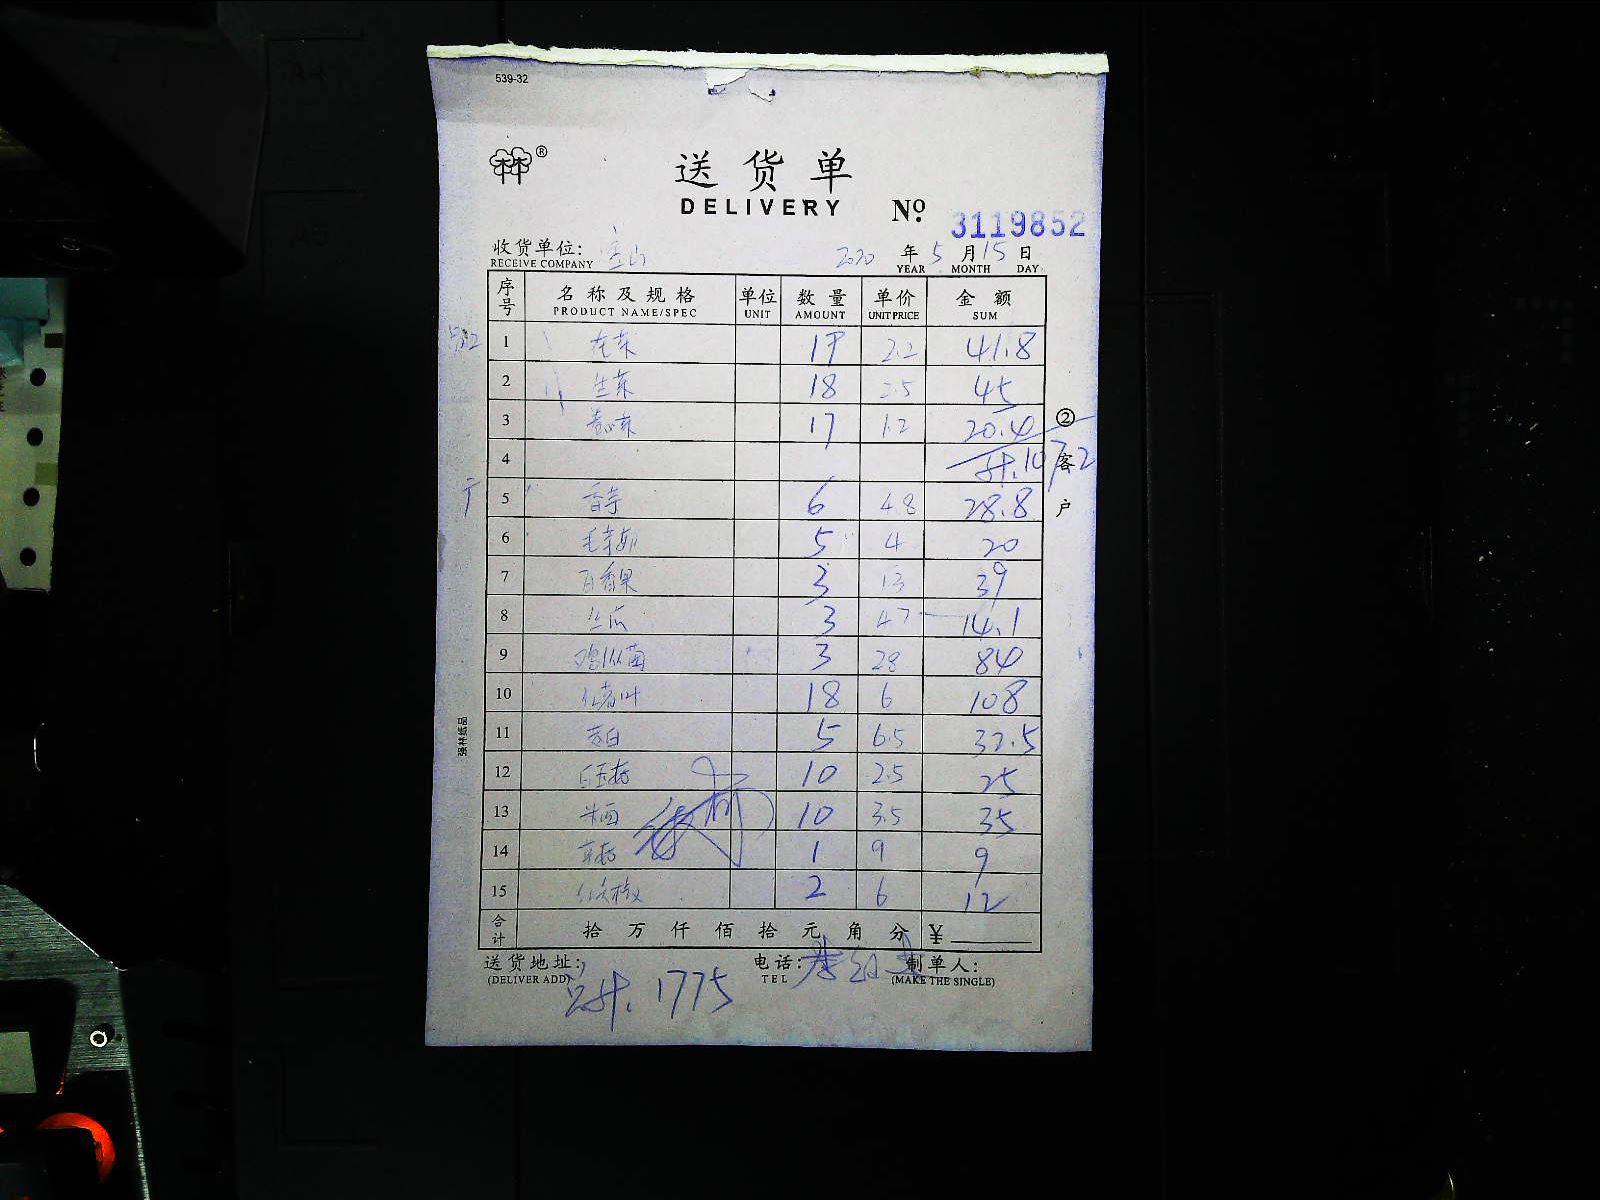 539-32
送货单
DELIVERY No. 3119852
收货单位: 宝山 2020 年 5 月 15 日
RECEIVE COMPANY YEAR MONTH DAY
序号 名称及规格 单位 数量 单价 金额
PRODUCT NAME/SPEC UNIT AMOUNT UNIT PRICE SUM
1 19 2.2 41.8
2 生菜 18 2.5 45
3 17 1.2 20.4
4 计.107.2
5 香芋 6 4.8 28.8
6 毛芋艿 5 4 20
7 百香果 3 13 39
8 丝瓜 3 4.7 14.1
9 鸡枞菌 3 28 84
10 18 6 108
11 茭白 5 6.5 32.5
12 白玉菇 10 2.5 25
13 10 3.5 35
14 1 9 9
15 红尖椒 2 6 12
合计 拾 万 仟 佰 拾 元 角 分 ¥
送货地址: 电话: 制单人:
(DELIVER ADD) TEL (MAKE THE SINGLE)
总计. 1775
②客户
强林纸品